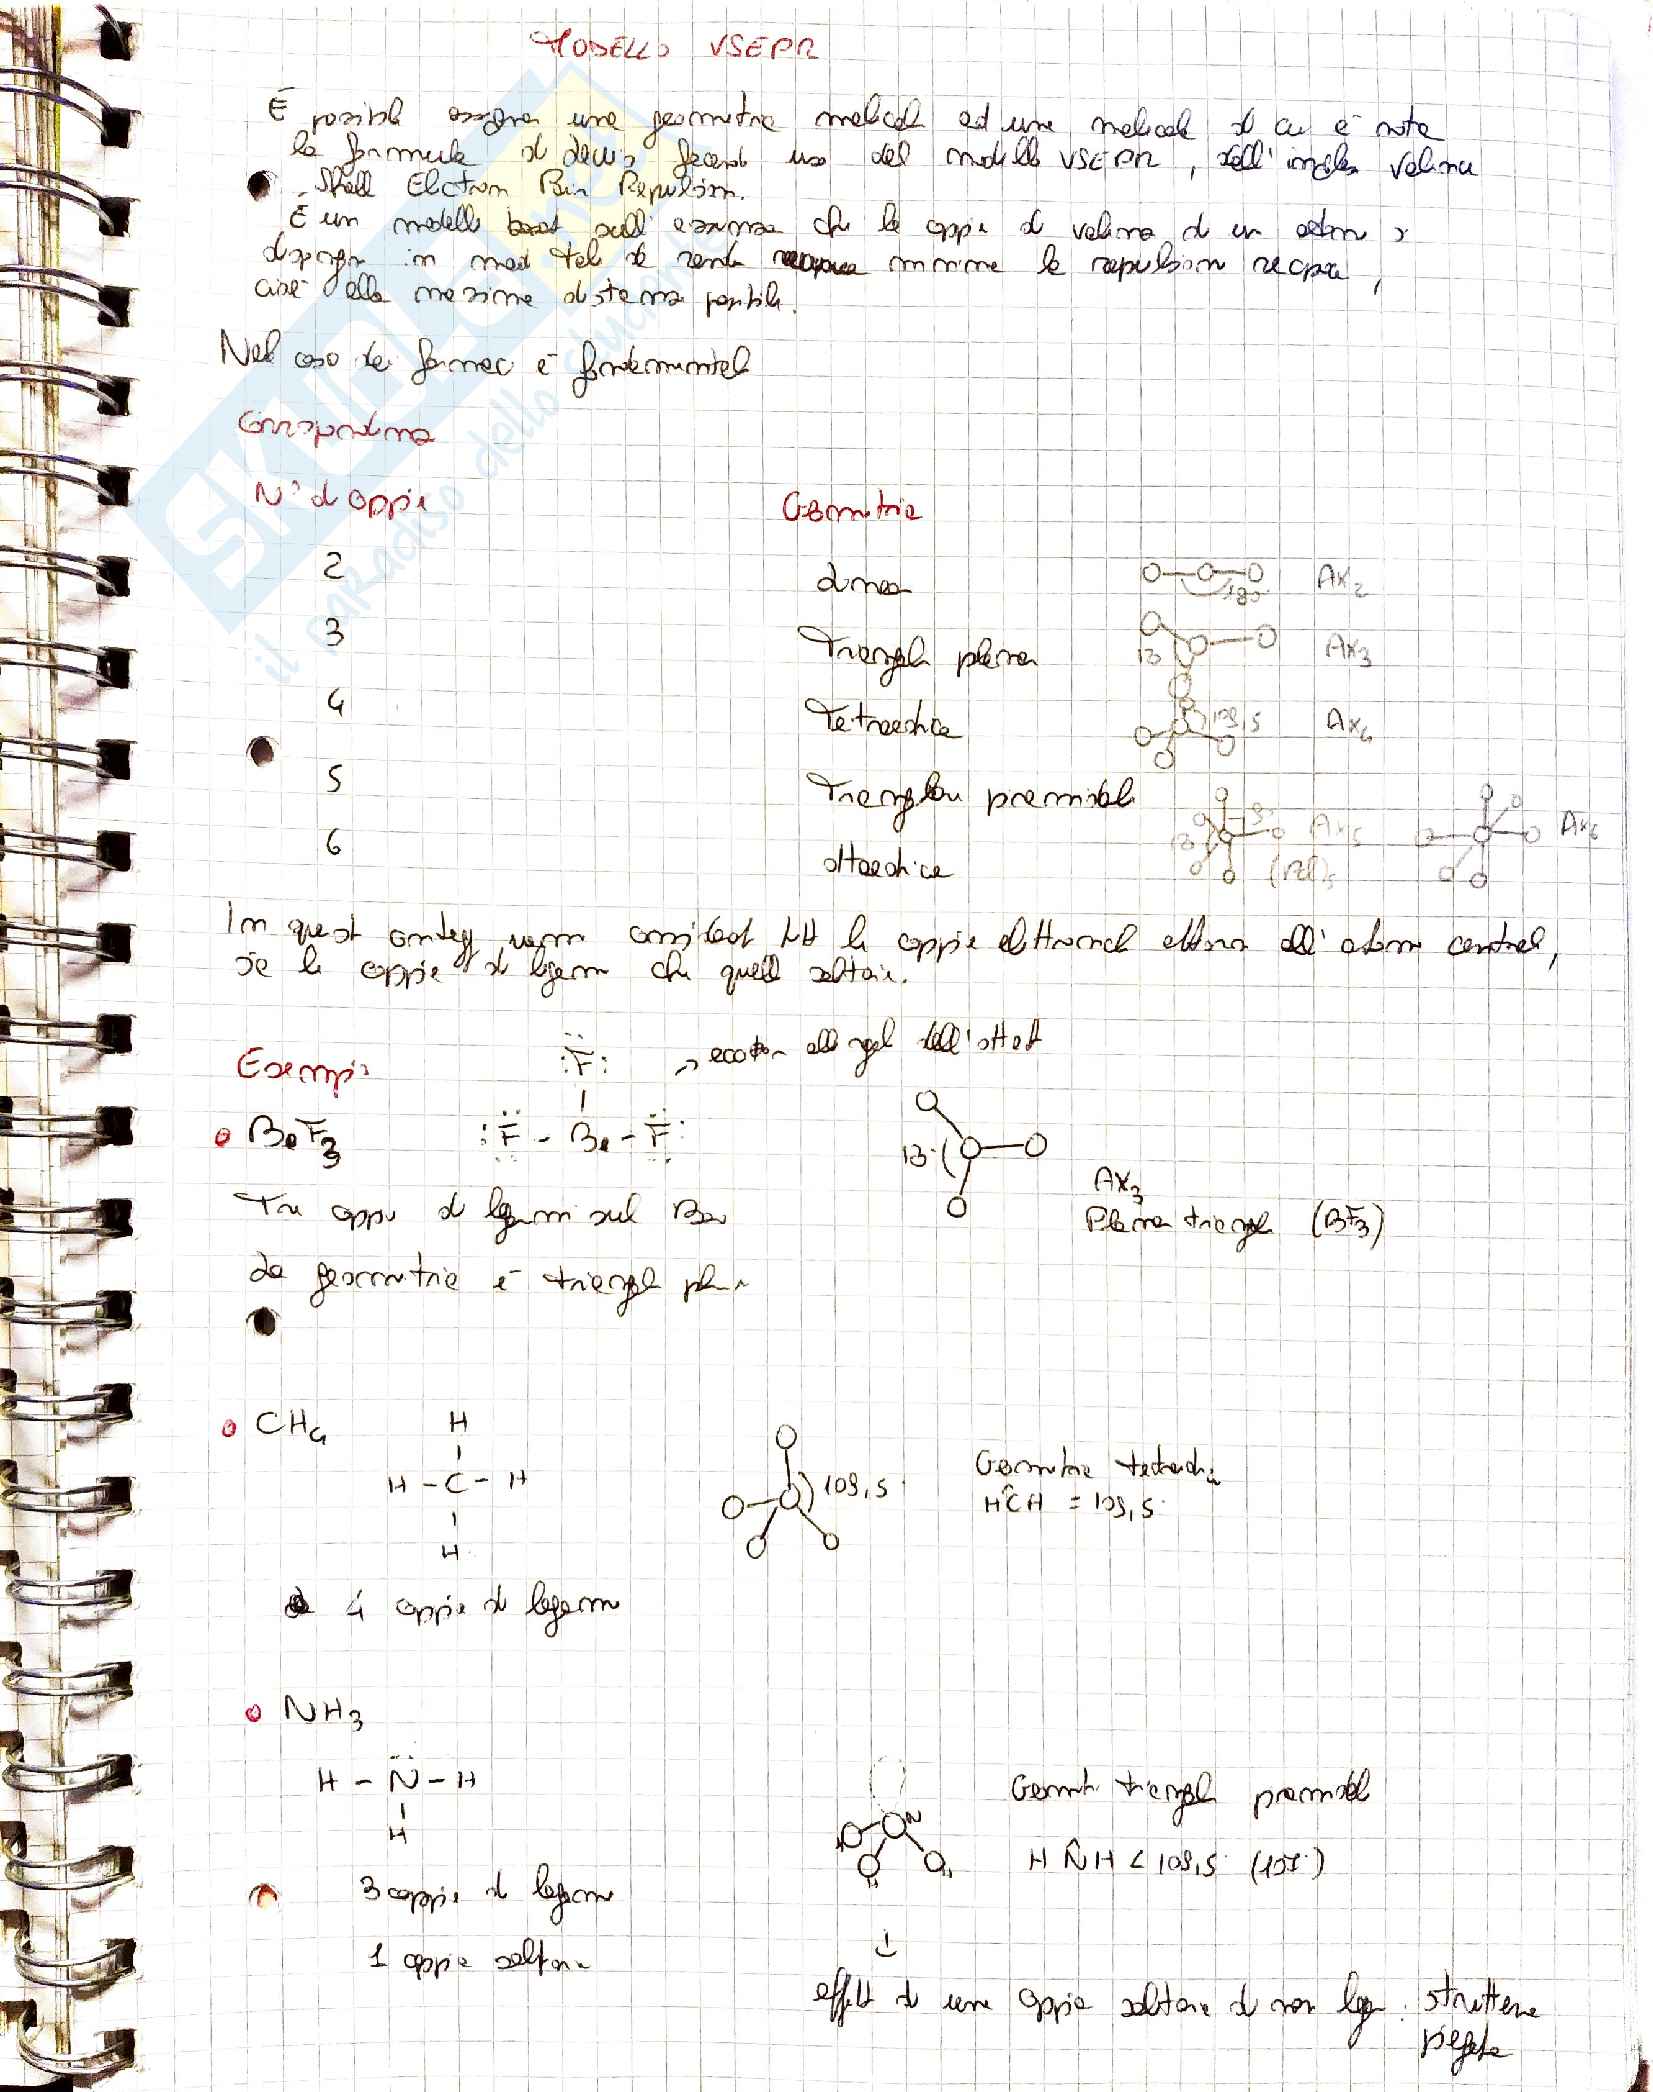 MODELLO VSEPR
È possibile assegnare una geometria molecolare ad una molecola di cui è nota
la formula di Lewis facendo uso del modello VSEPR, dall'inglese Valence
Shell Electron Pair Repulsion.
È un modello basato sull'assunzione che le coppie di valenza di un atomo si
dispongano in modo tale da rendere minime le repulsioni reciproche,
cioè alla massima distanza possibile.
Nel caso dei farmaci è fondamentale
Corrispondenza
N° di coppie Geometria
2 lineare 180° AX2
3 Triangolare planare 120 AX3
4 Tetraedrica 109,5 AX4
5 Triangolare piramidale 90° 120 AX5
6 ottaedrica AX6
In questo conteggio vanno considerate tutte le coppie elettroniche attorno all'atomo centrale,
sia le coppie di legame che quelle solitarie.
Esempi
→ eccezione alla regola dell'ottetto
BeF3
F
F - Be - F
120°
AX3
Planare triangolare (BF3)
Tre coppie di legame sul Be
La geometria è triangolare planare
CH4
H
H - C - H
H
109,5°
Geometria tetraedrica
HĈH = 109,5°
4 coppie di legame
NH3
H - N - H
H
N
H
H
H
Geometria triangolare piramidale
H N̂ H < 109,5° (107°)
3 coppie di legame
1 coppia solitaria
effetto di una coppia solitaria di non legame. struttura
piegata
skuola.net
il paradiso dello studente